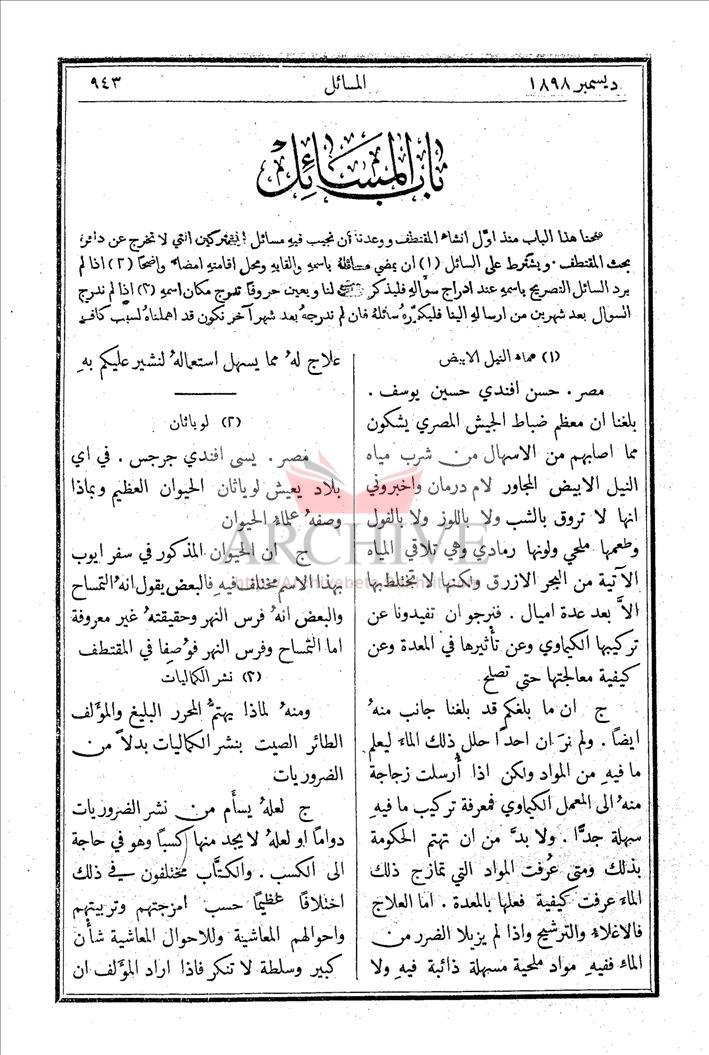 ديسمبر ١٨٩٨
المسائل
٩٤٣
باب المسائل
فتحنا هذا الباب منذ اوّل انشاء المقتطف ووعدنا ان نجيب فيهِ مسائل المشتركين التي لا تخرج عن دائرة
بحث المقتطف. ويشترط على السائل (١) ان يمضي مسائلهُ باسمهِ والقابهِ ومحل اقامتهِ امضاءً واضحاً (٢) اذا لم
يرد السائل التصريح باسمهِ عند ادراج سؤالهِ فليذكر ذلك لنا ويعين حروفاً تدرج مكان اسمهِ (٣) اذا لم ندرج
السوال بعد شهرين من ارسالهِ الينا فليكررهُ سائلهُ فان لم ندرجهُ بعد شهر آخر نكون قد اهملناهُ لسبب كافٍ
(١) مياه النيل الابيض
مصر. حسن افندي حسين يوسف.
بلغنا ان معظم ضباط الجيش المصري يشكون
مما اصابهم من الاسهال من شرب مياه
النيل الابيض المجاور لام درمان واخبروني
انها لا تروق بالشب ولا باللوز ولا بالفول
وطعمها ملحي ولونها رمادي وهي تلاقي المياه
الآتية من البحر الازرق ولكنها لا تختلط بها
الاَّ بعد عدة اميال. فنرجو ان تفيدونا عن
تركيبها الكيماوي وعن تأثيرها في المعدة وعن
كيفية معالجتها حتى تصلح
ج ان ما بلغكم قد بلغنا جانب منهُ
ايضاً. ولم نرَ ان احداً حلل ذلك الماء ليعلم
ما فيهِ من المواد ولكن اذا أُرسلت زجاجة
منهُ الى المعمل الكيماوي فمعرفة تركيب ما فيهِ
سهلة جدًّا. ولا بدَّ من ان تهتم الحكومة
بذلك ومتى عُرفت المواد التي تمازج ذلك
الماء عرفت كيفية فعلها بالمعدة. اما العلاج
فالاغلاء والترشيح واذا لم يزيلا الضرر من
الماء ففيهِ مواد ملحية مسهلة ذائبة فيهِ ولا
علاج لهُ مما يسهل استعمالهُ لنشير عليكم بهِ
(٢) لوياثان
مصر. يسى افندي جرجس. في اي
بلاد يعيش لوياثان الحيوان العظيم وبماذا
وصفهُ علماء الحيوان
ج ان الحيوان المذكور في سفر ايوب
بهذا الاسم مختلف فيهِ فالبعض يقول انهُ التمساح
والبعض انهُ فرس النهر وحقيقتهُ غير معروفة
اما التمساح وفرس النهر فوُصِفا في المقتطف
(٣) نشر الكماليات
ومنهُ لماذا يهتمُّ المحرر البليغ والمؤَلف
الطائر الصيت بنشر الكماليات بدلاً من
الضروريات
ج لعلهُ يسأَم من نشر الضروريات
دواماً او لعلهُ لا يجد منها كسباً وهو في حاجة
الى الكسب. والكتَّاب مختلفون في ذلك
اختلافاً عظيماً حسب امزجتهم وتربيتهم
واحوالهم المعاشية وللاحوال المعاشية شأن
كبير وسلطة لا تنكر فاذا اراد المؤَلف ان
ARCHIVE